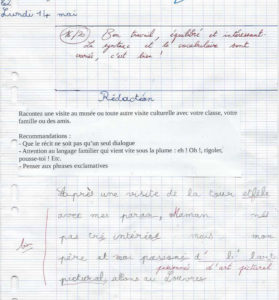 Lundi 14 mai
16/20 Bon travail, équilibré et intéressant
La syntaxe et le vocabulaire sont
variés, c'est bien !
Rédaction
Racontez une visite au musée ou toute autre visite culturelle avec votre classe, votre
famille ou des amis.
Recommandations :
- Que le récit ne soit pas qu'un seul dialogue
- Attention au langage familier qui vient vite sous la plume : eh ! Oh !, rigoler,
pousse-toi ! Etc.
- Penser aux phrases exclamatives
Après une visite de la tour
avec mes Maman
pas très mais mon
père et moi
passionnés d'art pictural
pictural, allons au Louvre